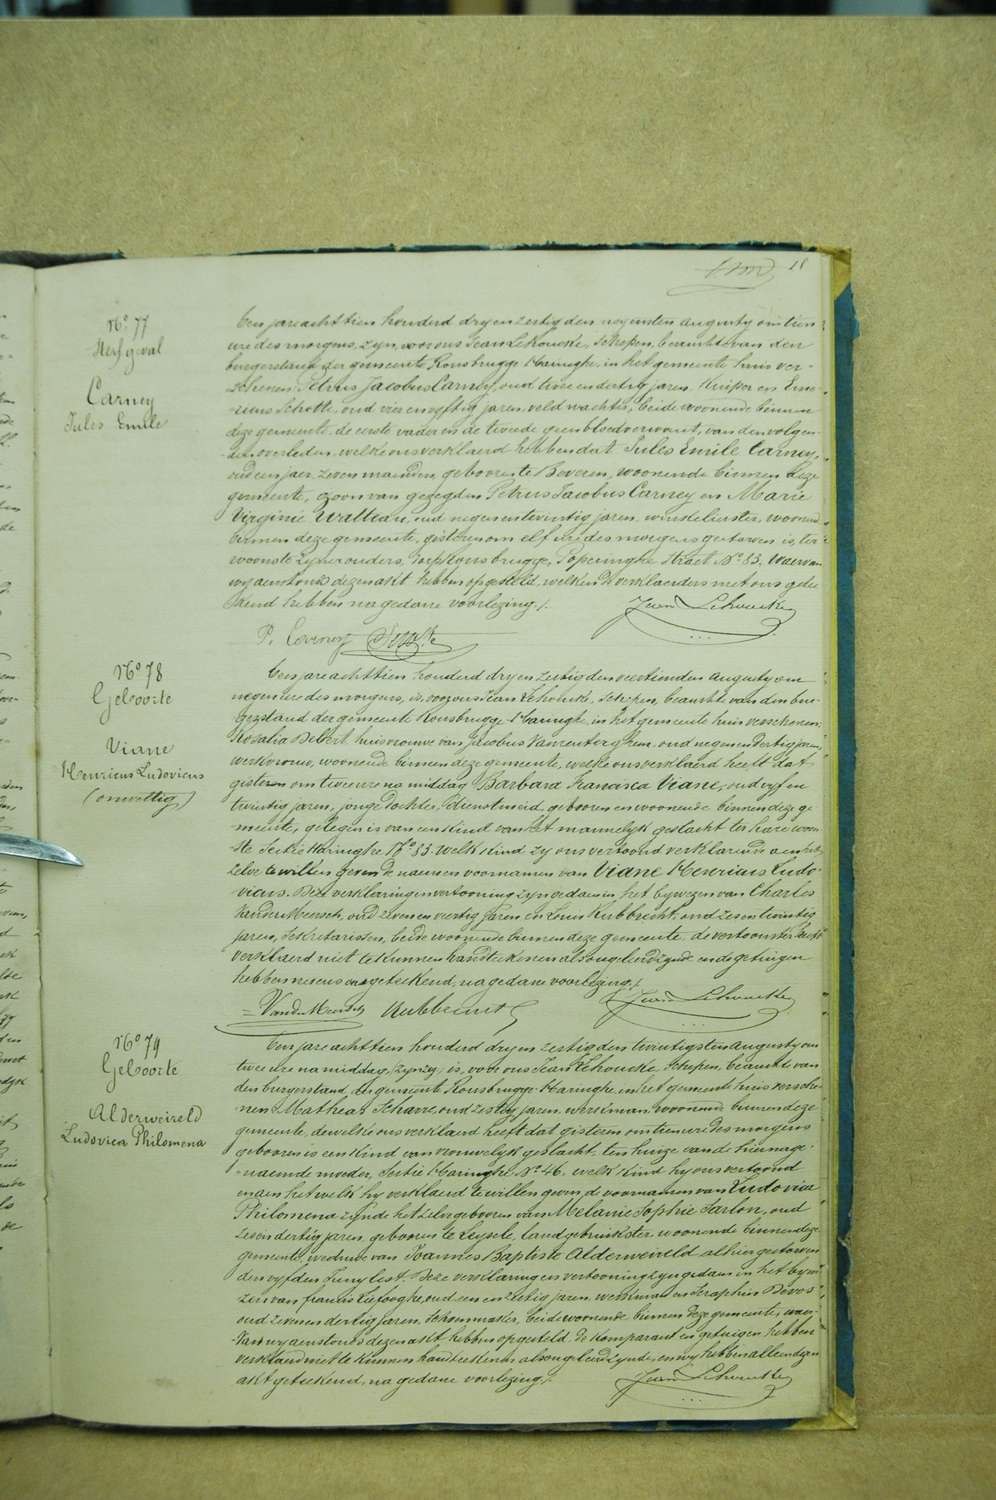 18
N° 77
Sterfgeval
Carney
Jules Emile
Een jare achttien honderd dry en zestig den negensten augusty om tien
ure des morgens, zyn, voor ons Jean Lehoucke, Schepen, beambte van den
burgerstand der gemeente Rousbrugge-Haringhe, in het gemeente huis ver-
schenen Petrus Jacobus Carney, oud twee en dertig jaren, Kuiper en
Schotte, oud vier en vyftig jaren, veld wachter, beide woonende binnen
deze gemeente, de eerste vader en de tweede geen bloedverwant, van den volgen-
den overleden, welke ons verklaerd hebben dat Jules Emile Carney,
oud een jaer zeven maenden, geboren te Beveren, woonende binnen deze
gemeente, zoon van gezegden Petrus Jacobus Carney en Marie
Virginie Walleau, oud negen en twintig jaren, winkelierster, woonend
binnen deze gemeente, gisteren om elf ure des morgens gestorven is, ter
woonste zyner ouders, dorp Rousbrugge, Poperinghe Straet N° 53. Waer van
wy aenstonds deze akt hebben opgesteld, welken de verklaerders met ons getee
kend hebben na gedane voorlezing /.
Jean Lehoucke
P. Carney
N° 78
Geboorte
Viane
Henricus Ludovicus
(onwettig)
Een jare achttien honderd dry en zestig den veertienden augusty om
negen ure des morgens, is, voor ons Jean Lehoucke, Schepen, beambte van den bur-
gerstand der gemeente Rousbrugge-Haringhe, in het gemeente huis verschenen
Rosalia Debert, huisvrouwe van Jacobus Vanzenterghem, oud negen en dertig jaren,
werkvrouw, woonende binnen deze gemeente, welke ons verklaerd heeft dat
gisteren om twee ure na middag Barbara Francisca Viane, oud vyf en
twintig jaren, jonge dochter, dienstmeid, geboren en woonende binnen deze ge
meente, gelegen is van een kind van het mannelyk geslacht ter hare woon-
ste Sectie Haringhe N° 53. welk kind zy ons vertoond verklarende aen het
zelve te willen geven de naem en voornamen van Viane Henricus Ludo-
vicus. Deze verklaring en vertooning zyn gedaen in het bywezen van Charles
Vander Meersch, oud zeven en veertig jaren en Louis Rubbrecht, oud zes en twintig
jaren, Sekretarissen, beide woonende binnen deze gemeente. de vertoonster heeft
verklaerd niet te kunnen handteekenen als ongeleerd zynde en de getuigen
hebben nevens ons geteekend, na gedane voorlezing /.
Jean Lehoucke
VanderMeersch Rubbrecht
N° 79
Geboorte
Alderweireld
Ludovica Philomena
Een jare achttien honderd dry en zestig den twintigsten augusty om
twee ure na middag, is, voor ons Jean Lehoucke, Schepen, beambte van
den burgerstand der gemeente Rousbrugge-Haringhe, in het gemeente huis versche-
nen Matheas Schare, oud zestig jaren, werkman, woonende binnen deze
gemeente, dewelke ons verklaerd heeft dat gisteren om tien ure des morgens
geboren is een kind van vrouwelyk geslacht, ten huize van de hiernage-
naemde moeder, Sectie Haringhe N° 46. welk kind hy ons vertoond
en aen het welk hy verklaerd te willen geven de voornamen van Ludovica
Philomena zynde hetzelve geboren van Melanie Sophie Tarlon, oud
zes en dertig jaren, geboren te Leysele, landgebruikster, woonende binnen deze
gemeente, weduwe van Joannes Baptiste Alderweireld alhier gestorven
den vyfden Juny lest. Deze verklaring en vertooning zyn gedaen in het bywe
zen van Francis Liefooghe, oud een en zestig jaren, werkman en Seraphin Devos
oud zeven en dertig jaren, Schoenmaker, beide woonende binnen deze gemeente, waer-
van wy aenstonds deze akt hebben opgesteld. De komparant en getuigen hebben
verklaerd niet te kunnen handteekenen als ongeleerd zynde, en wy hebben alleen dezen
akt geteekend, na gedane voorlezing /.
Jean Lehoucke